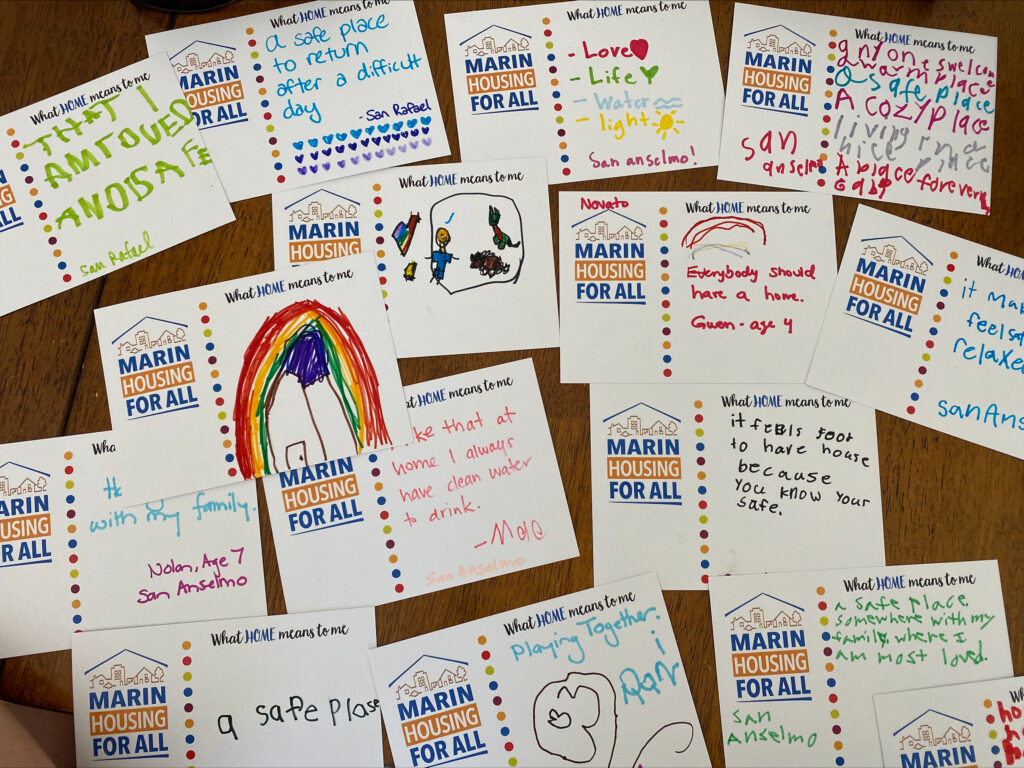 What HOME means to me
MARIN
HOUSING
FOR ALL
a safe place
to return
after a difficult
day
- San Rafael
What HOME means to me
MARIN
HOUSING
FOR ALL
- Love
- Life
- Water
- light
San anselmo!
What HOME means to me
MARIN
HOUSING
FOR ALL
a warm place
a safe place
A cozy place
living
nice
A place for every
san
anselmo
What HOME means to me
THAT I
AM LOVES
AND SAFE
San Rafael
What HOME means to me
MARIN
HOUSING
What HOME means to me
Novato
MARIN
HOUSING
FOR ALL
Everybody should
have a home.
Gwen - age 4
What HOM
MARIN
HOUSING
FOR ALL
it ma
feel saf
relaxe
San Ans
What HOME means to me
MARIN
HOUSING
FOR ALL
HOME means to me
ke that at
home I always
have clean water
to drink.
San Anselmo
MARIN
HOUSING
FOR ALL
What HOME means to me
MARIN
HOUSING
FOR ALL
it feels
to have house
because
you know your
safe.
Wha
MARIN
HOUSING
FOR ALL
with my family.
Nolan, Age 7
San Anselmo
What HOME means to me
MARIN
HOUSING
FOR ALL
a safe plase
What HOME means to me
MARIN
HOUSING
FOR ALL
Playing Together.
What HOME means to me
MARIN
HOUSING
FOR ALL
a safe place
somewhere with my
family where I
am most loved.
San
Anselmo
Wha
MARIN
ho